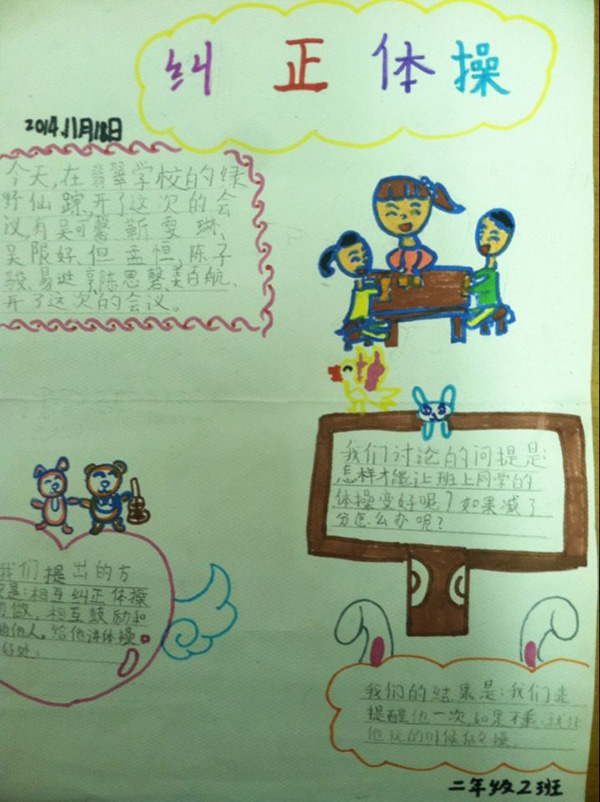 纠正体操
2014.11月18日
今天,在翡翠学校的绿
野仙踪,开了这次的会
议,有吴可馨靳雯琳、
吴限好.但孟恒,陈子
骏、易 陈思馨姜白航、
开了这次的会议。
我们讨论的问提是:
怎样才能让班上同学的
体操变好呢?如果减了
分怎么办呢?
我们提出的方
是:相互纠正体操
做,相互鼓励和
他人。给他讲体操
好处。
我们的结果是:我们先
提醒他一次,如果不乖,就让
他玩的时候做操。
二年级2班